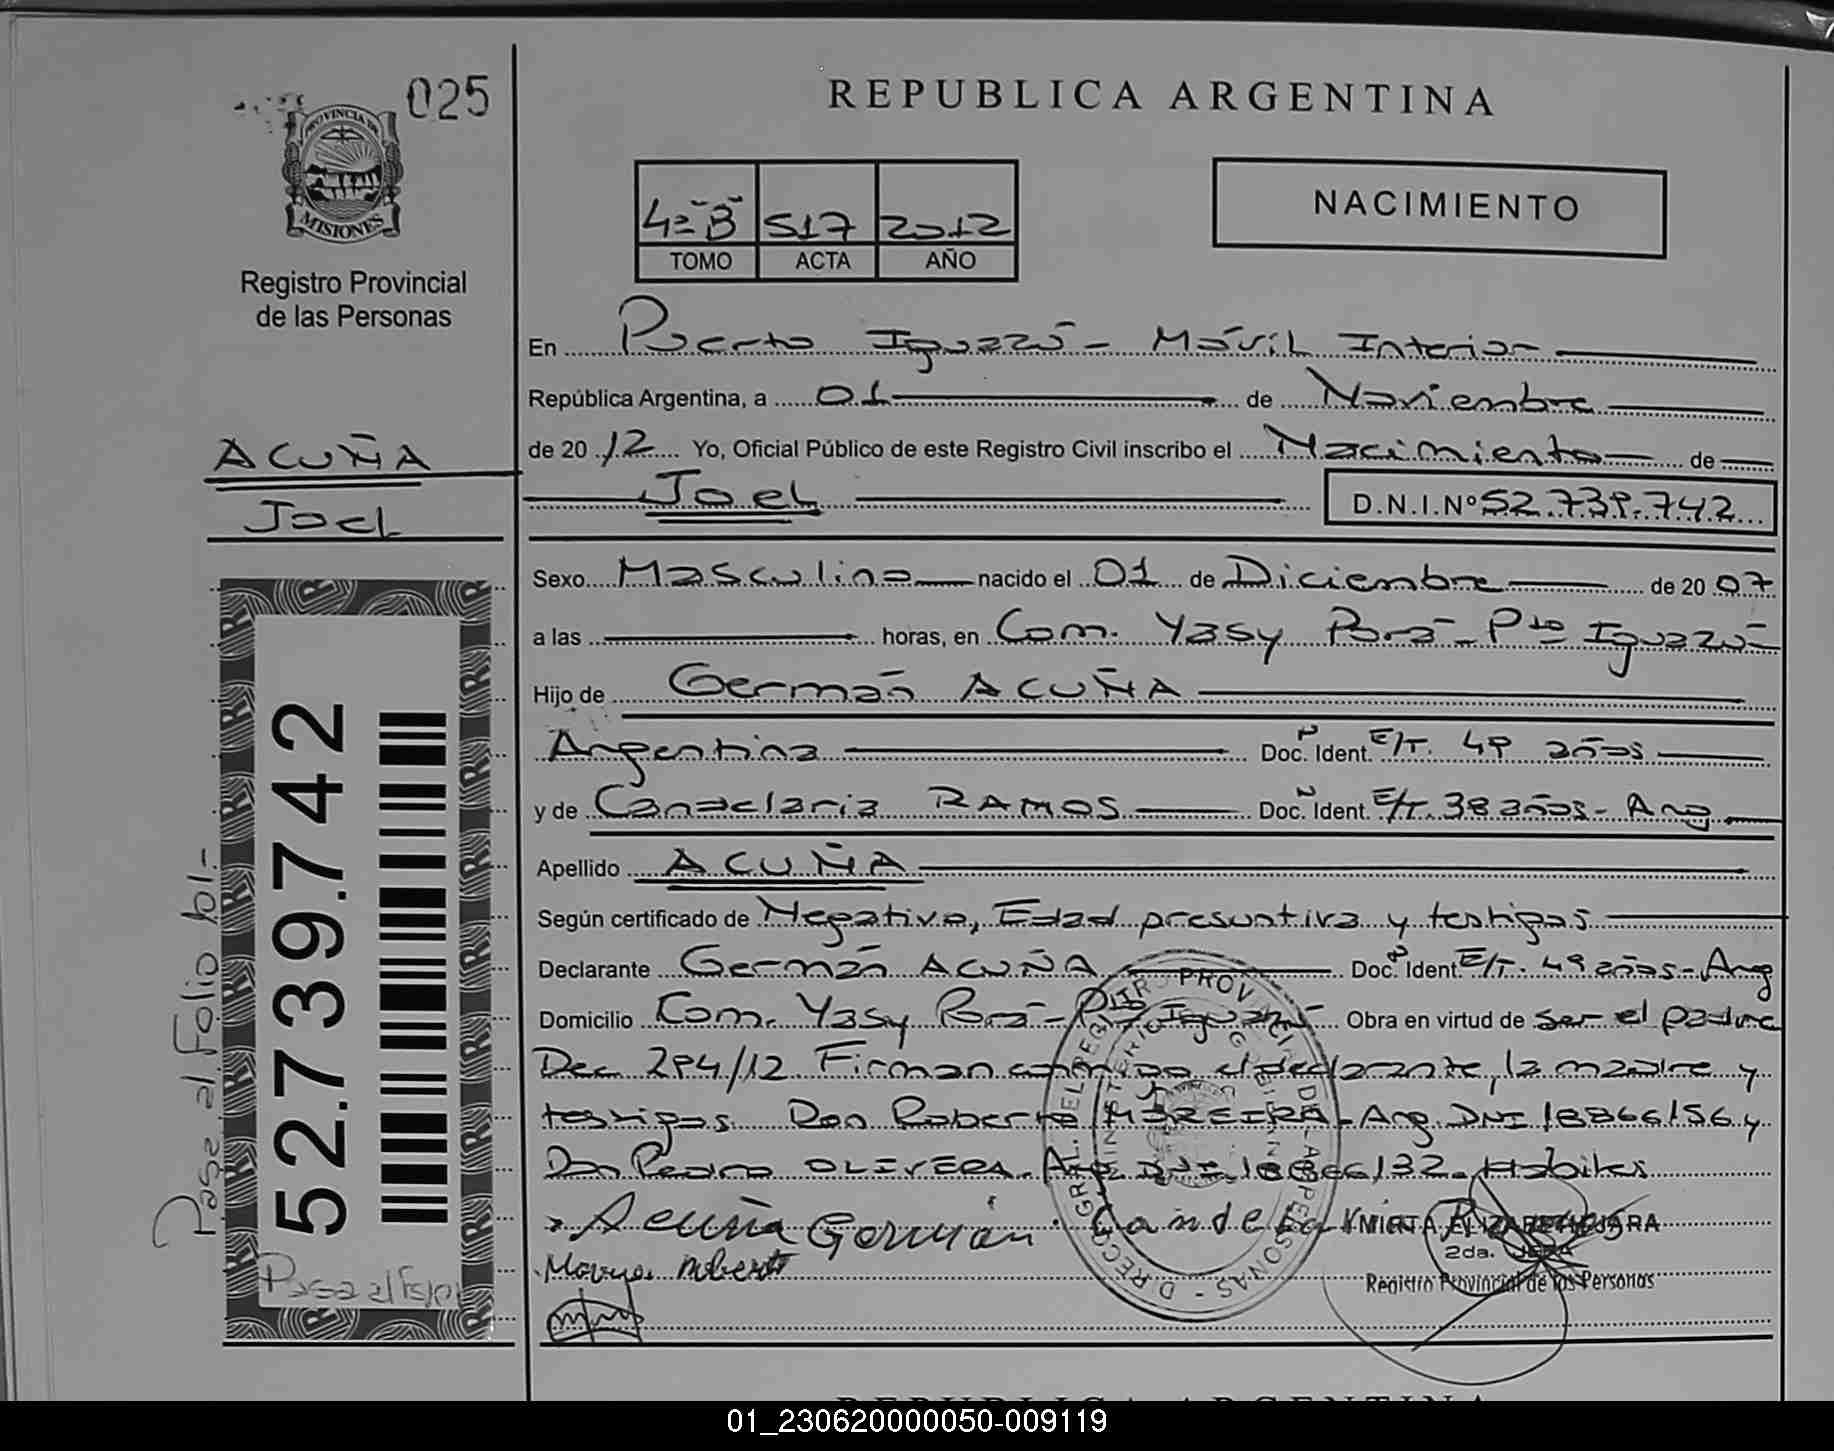 025
PROVINCIA DE
MISIONES
Registro Provincial
de las Personas
ACUÑA
Joel
52.739.742
Pase al Folio 61.-
REPUBLICA ARGENTINA
4º "B" 517 2012
TOMO ACTA AÑO
NACIMIENTO
En Puerto Iguazú - Móvil Interior
República Argentina, a 01 de Noviembre
de 2012 Yo, Oficial Público de este Registro Civil inscribo el Nacimiento de
Joel D.N.I.Nº 52.739.742
Sexo Masculino nacido el 01 de Diciembre de 2007
a las horas, en Com. Yasy Porá - Pto Iguazú
Hijo de Germán ACUÑA
Argentina Doc. Ident. E/T. 49 años
y de Candelaria RAMOS Doc. Ident. E/T. 38 años - Arg
Apellido ACUÑA
Según certificado de Negativo, Edad presuntiva y testigos
Declarante Germán ACUÑA Doc. Ident. E/T. 49 años - Arg
Domicilio Com. Yasy Porá - Pto Iguazú Obra en virtud de ser el padre
Dec 294/12 Firman conmigo el declarante, la madre y
testigos Don Roberto MOREIRA - Arg. DNI 18866156 y
Don Pedro OLIVERA - Arg DNI 18866132. Hábiles
Acuña Germán Candelaria Ramos
MIRTA ELIZABETH JARA
2da. JEFA
Registro Provincial de las Personas
REPUBLICA ARGENTINA
01_230620000050-009119